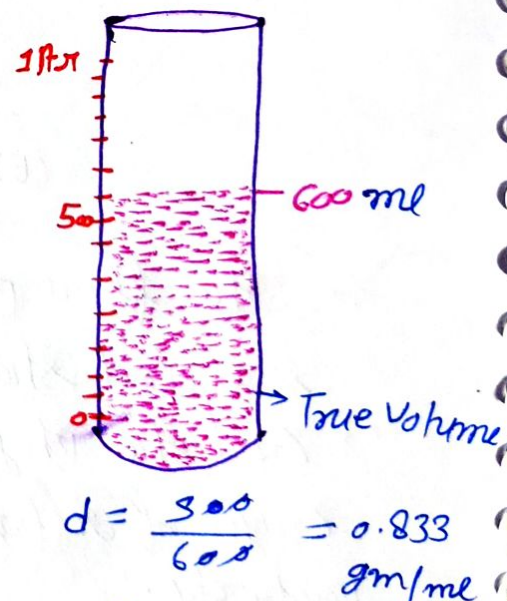 1 ltr
600 ml
500
0
True Volume
d = 500 / 600 = 0.833
gm/ml